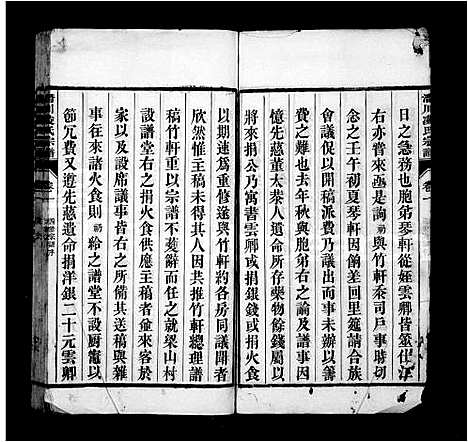 日之急務也胞弟琴軒從姪雲卿皆筮仕江
右亦嘗來函是詢祠與竹軒忝司戶事時切
念之壬午初夏琴軒因餉差回里筵請合族
會議促以開稿派費乃議出而事未辦以籌
費之難也去年秋與胞弟右之論及譜事因
憶先慈董太夫人遺命所存藥物餘錢屬以
將來捐公乃寓書雲卿或捐銀錢或捐火食
以期速為重修遂與竹軒約各房同議開者
欣然惟主稿未得其人因共推竹軒總理譜
稿竹軒以宗譜不蒌辭而任之就梁山村
設譜堂右之捐火食供應主稿者僉來客居
家以及設席議事皆右之所備其送稿與雜
事往來諸火食則祠給之譜堂不設廚竈以
節冗費又遵先慈遺命捐洋銀二十元雲卿